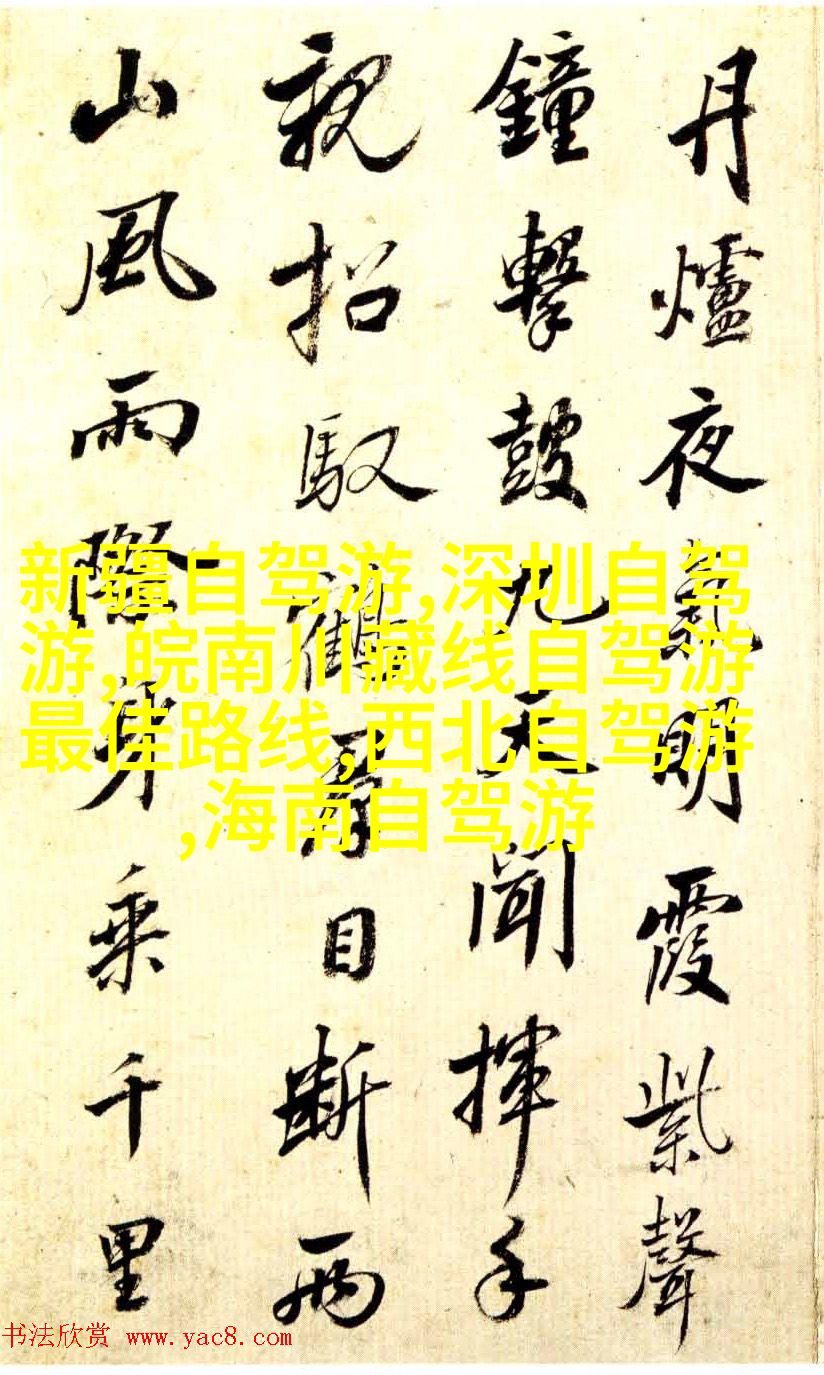 丹爐夜氣明霞紫聲
鐘擊鼓九天聞揮手
親招馭鶴扇目斷兩
山風雨際身乘千里
新疆自驾游,深圳自驾
游,皖南川藏线自驾游
最佳路线,西北自驾游
,海南自驾游
书法欣赏 www.yac8.com